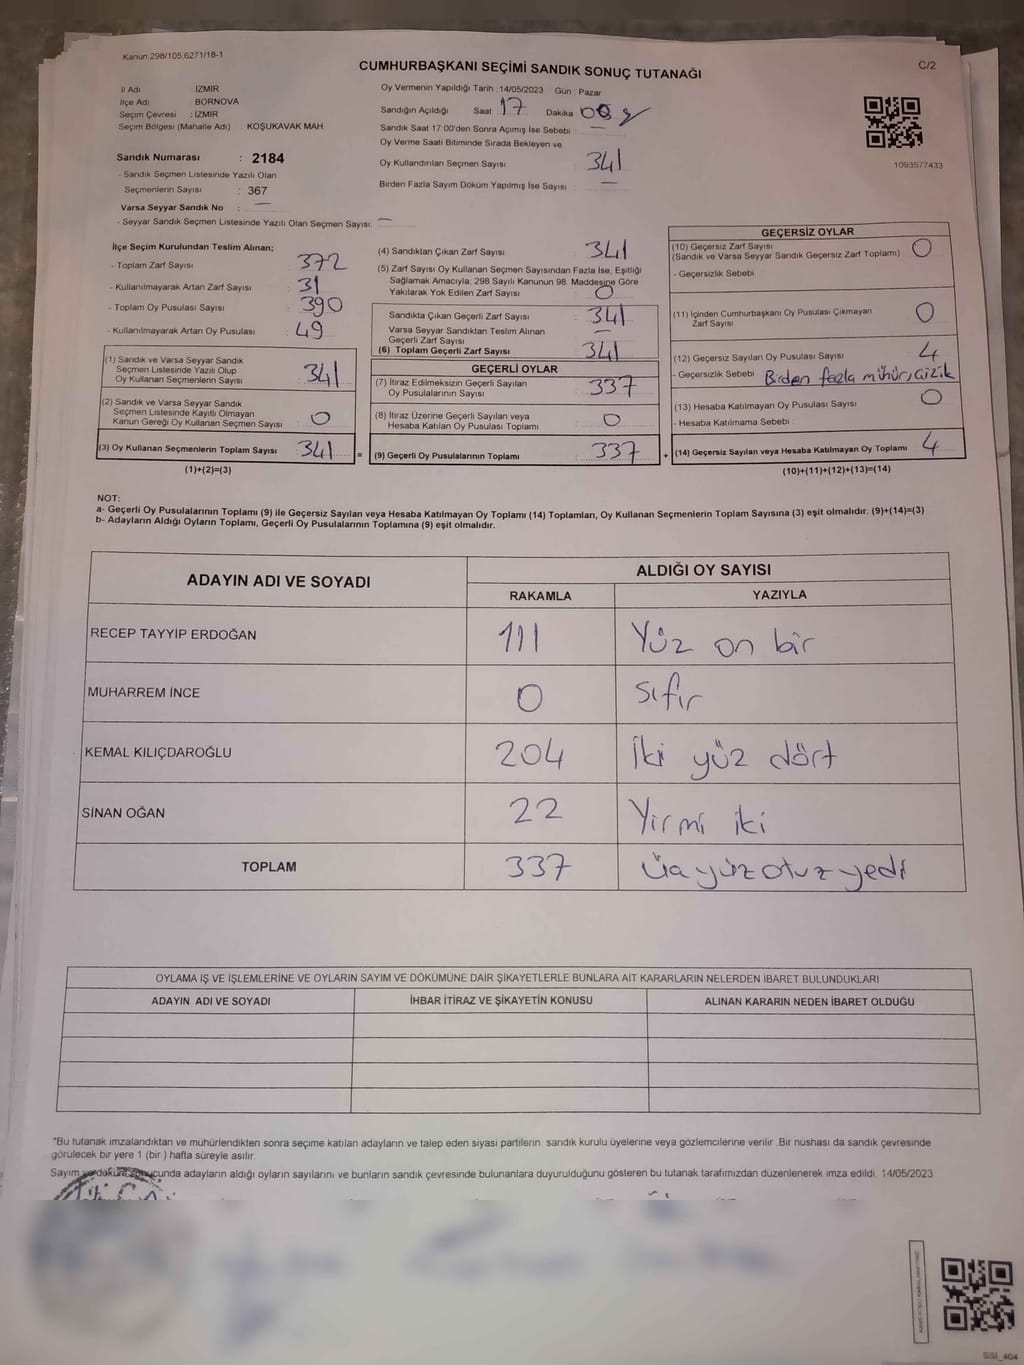 Kanun 298/105,6271/18-1
C/2
CUMHURBAŞKANI SEÇİMİ SANDIK SONUÇ TUTANAĞI
İl Adı İZMİR
İlçe Adı BORNOVA
Seçim Çevresi : İZMİR
Seçim Bölgesi (Mahalle Adı) . KOŞUKAVAK MAH.
Sandık Numarası : 2184
- Sandık Seçmen Listesinde Yazılı Olan
Seçmenlerin Sayısı : 367
Varsa Seyyar Sandık No : —
- Seyyar Sandık Seçmen Listesinde Yazılı Olan Seçmen Sayısı: —
Oy Vermenin Yapıldığı Tarih : 14/05/2023 Gün : Pazar
Sandığın Açıldığı Saat 17 Dakika 00
Sandık Saat 17:00'den Sonra Açımış İse Sebebi —
Oy Verme Saati Bitiminde Sırada Bekleyen ve
Oy Kullandırılan Seçmen Sayısı 341
Birden Fazla Sayım Döküm Yapılmış İse Sayısı —
1093577433
İlçe Seçim Kurulundan Teslim Alınan;
- Toplam Zarf Sayısı 372
- Kullanılmayarak Artan Zarf Sayısı 31
- Toplam Oy Pusulası Sayısı 390
- Kullanılmayarak Artan Oy Pusulası 49
(1) Sandık ve Varsa Seyyar Sandık
Seçmen Listesinde Yazılı Olup
Oy Kullanan Seçmenlerin Sayısı 341
(2) Sandık ve Varsa Seyyar Sandık
Seçmen Listesinde Kayıtlı Olmayan
Kanun Gereği Oy Kullanan Seçmen Sayısı 0
(3) Oy Kullanan Seçmenlerin Toplam Sayısı 341
(1)+(2)=(3)
(4) Sandıktan Çıkan Zarf Sayısı 341
(5) Zarf Sayısı Oy Kullanan Seçmen Sayısından Fazla İse, Eşitliği
Sağlamak Amacıyla; 298 Sayılı Kanunun 98. Maddesine Göre
Yakılarak Yok Edilen Zarf Sayısı 0
Sandıkta Çıkan Geçerli Zarf Sayısı 341
Varsa Seyyar Sandıktan Teslim Alınan
Geçerli Zarf Sayısı —
(6) Toplam Geçerli Zarf Sayısı 341
GEÇERLİ OYLAR
(7) İtiraz Edilmeksizin Geçerli Sayılan
Oy Pusulalarının Sayısı 337
(8) İtiraz Üzerine Geçerli Sayılan veya
Hesaba Katılan Oy Pusulası Toplamı 0
= (9) Geçerli Oy Pusulalarının Toplamı 337
GEÇERSİZ OYLAR
(10) Geçersiz Zarf Sayısı 0
(Sandık ve Varsa Seyyar Sandık Geçersiz Zarf Toplamı)
- Geçersizlik Sebebi
(11) İçinden Cumhurbaşkanı Oy Pusulası Çıkmayan
Zarf Sayısı 0
(12) Geçersiz Sayılan Oy Pusulası Sayısı 4
- Geçersizlik Sebebi Birden fazla mühür, çizik
(13) Hesaba Katılmayan Oy Pusulası Sayısı 0
- Hesaba Katılmama Sebebi
+ (14) Geçersiz Sayılan veya Hesaba Katılmayan Oy Toplamı 4
(10)+(11)+(12)+(13)=(14)
NOT:
a- Geçerli Oy Pusulalarının Toplamı (9) ile Geçersiz Sayılan veya Hesaba Katılmayan Oy Toplamı (14) Toplamları, Oy Kullanan Seçmenlerin Toplam Sayısına (3) eşit olmalıdır. (9)+(14)=(3)
b- Adayların Aldığı Oyların Toplamı, Geçerli Oy Pusulalarının Toplamına (9) eşit olmalıdır.
ADAYIN ADI VE SOYADI ALDIĞI OY SAYISI
RAKAMLA YAZIYLA
RECEP TAYYİP ERDOĞAN 111 Yüz on bir
MUHARREM İNCE 0 Sıfır
KEMAL KILIÇDAROĞLU 204 İki yüz dört
SİNAN OĞAN 22 Yirmi iki
TOPLAM 337 Üç yüz otuz yedi
OYLAMA İŞ VE İŞLEMLERİNE VE OYLARIN SAYIM VE DÖKÜMÜNE DAİR ŞİKAYETLERLE BUNLARA AİT KARARLARIN NELERDEN İBARET BULUNDUKLARI
ADAYIN ADI VE SOYADI İHBAR İTİRAZ VE ŞİKAYETİN KONUSU ALINAN KARARIN NEDEN İBARET OLDUĞU
*Bu tutanak imzalandıktan ve mühürlendikten sonra seçime katılan adayların ve talep eden siyasi partilerin sandık kurulu üyelerine veya gözlemcilerine verilir .Bir nüshası da sandık çevresinde
görülecek bir yere 1 (bir ) hafta süreyle asılır.
Sayım ve döküm sonucunda adayların aldığı oyların sayılarını ve bunların sandık çevresinde bulunanlara duyurulduğunu gösteren bu tutanak tarafımızdan düzenlenerek imza edildi. 14/05/2023
SSI_404